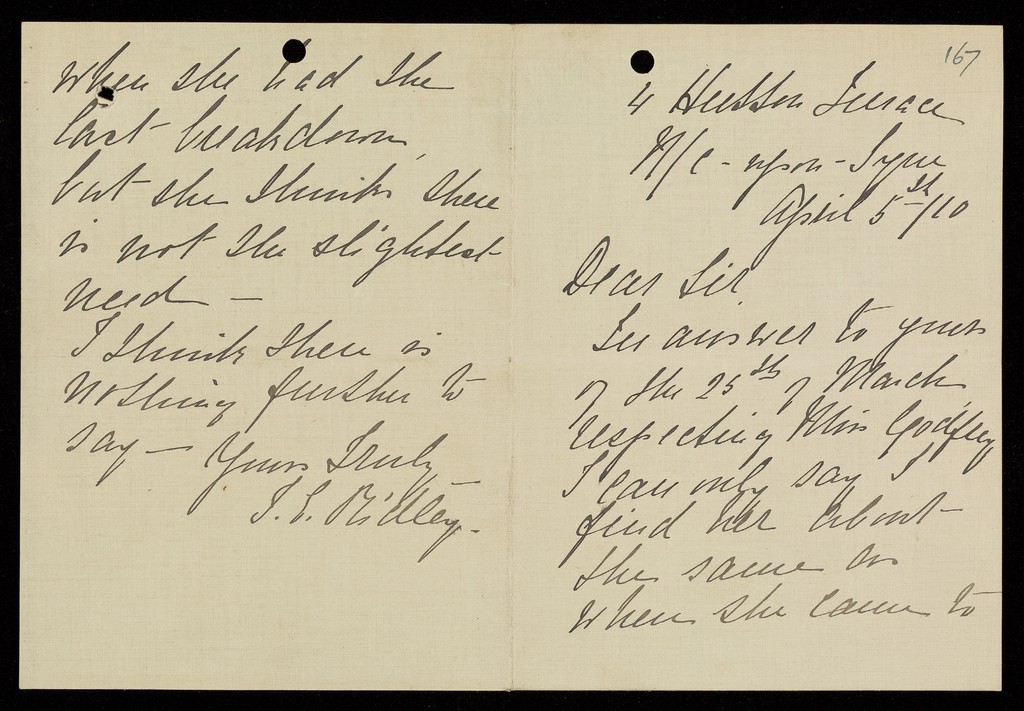 when she had the
last breakdown,
but she thinks there
is not the slightest
need —
I think there is
nothing further to
say — Yours Truly
J. E. Ridley.
167
4 Hutton Terrace
N/C - upon - Tyne
April 5th/10
Dear Sir,
In answer to yours
of the 25th of March
respecting Miss Godfrey
I can only say I
find her about
the same as
when she came to